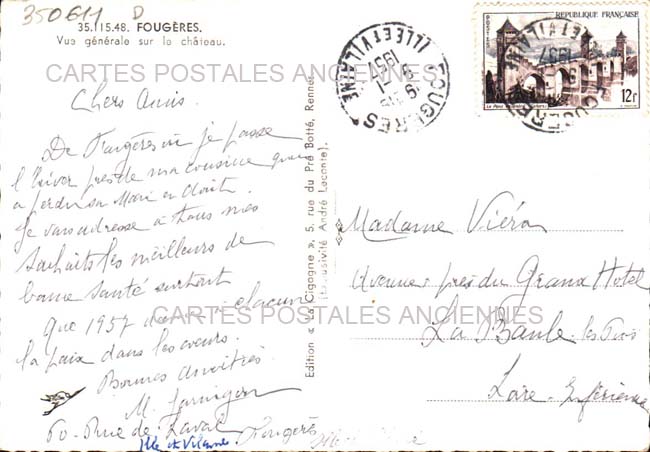 350611 D
35.115.48. FOUGÈRES.
Vue générale sur le château.
CARTES POSTALES ANCIENNES
Chers Amis.
De Fougères où je passe
l'hiver près de ma cousine qui
a perdu son Mari en Août
Je vous adresse à tous mes
souhaits les meilleurs de
bonne santé surtout
que 1957 donne à chacun
la paix dans les cœurs.
Bonnes amitiés
M.
60 Rue de Laval
Ille et Vilaine. Fougères
Edition « La Cigogne », 5, rue du Pré Botté, Rennes
(Exclusivité André Leconte).
FOUGERES
ILLE ET VILAINE
1957
POSTES
REPUBLIQUE FRANÇAISE
12F
FOUGERES
1957
Madame Viéron
Avenue près du Grand Hotel
CARTES POSTALES ANCIENNES
La Baule les Pins
Loire Inférieure